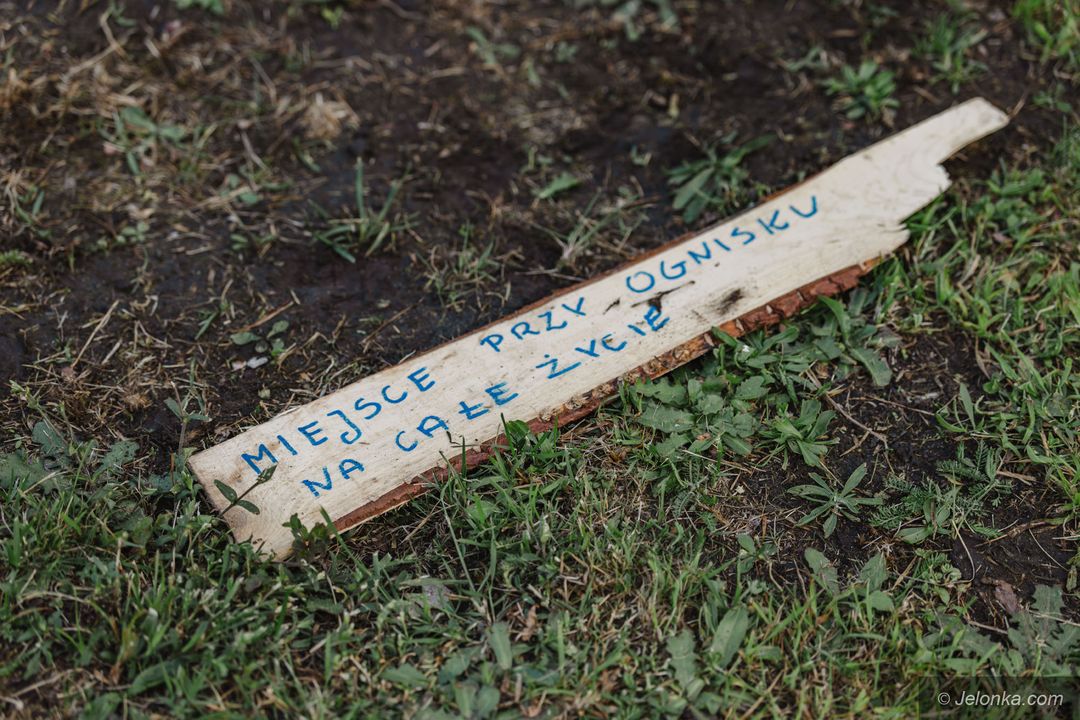 MIEJSCE PRZY OGNISKU
NA CAŁE ŻYCIE
© Jelonka.com